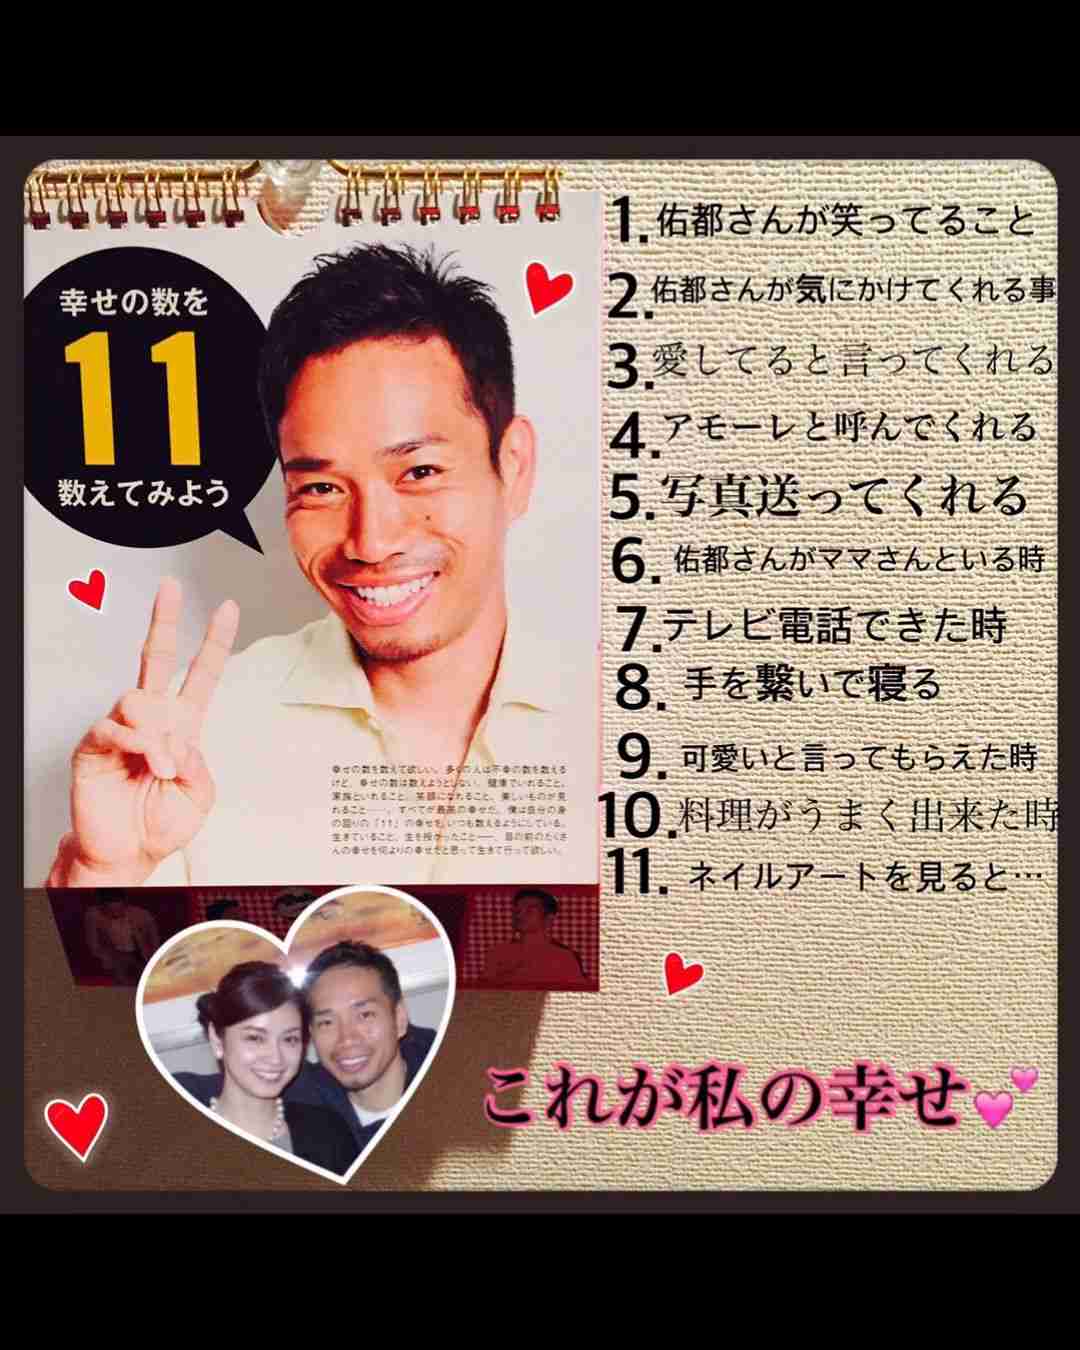 幸せの数を
11
数えてみよう
幸せの数を数えて欲しい。多くの人は不幸の数を数える
けど、幸せの数は数えようとしない。健康でいれること。
家族といれること。笑顔になれること。美しいものが見
れること――。すべてが最高の幸せだ。僕は自分の身
の回りの「11」の幸せを、いつも数えるようにしている。
生きていること、生を授かったこと――。目の前のたくさ
んの幸せを何よりの幸せだと思って生きて行って欲しい。
1.佑都さんが笑ってること
2.佑都さんが気にかけてくれる事
3.愛してると言ってくれる
4.アモーレと呼んでくれる
5.写真送ってくれる
6.佑都さんがママさんといる時
7.テレビ電話できた時
8.手を繋いで寝る
9.可愛いと言ってもらえた時
10.料理がうまく出来た時
11.ネイルアートを見ると…
これが私の幸せ